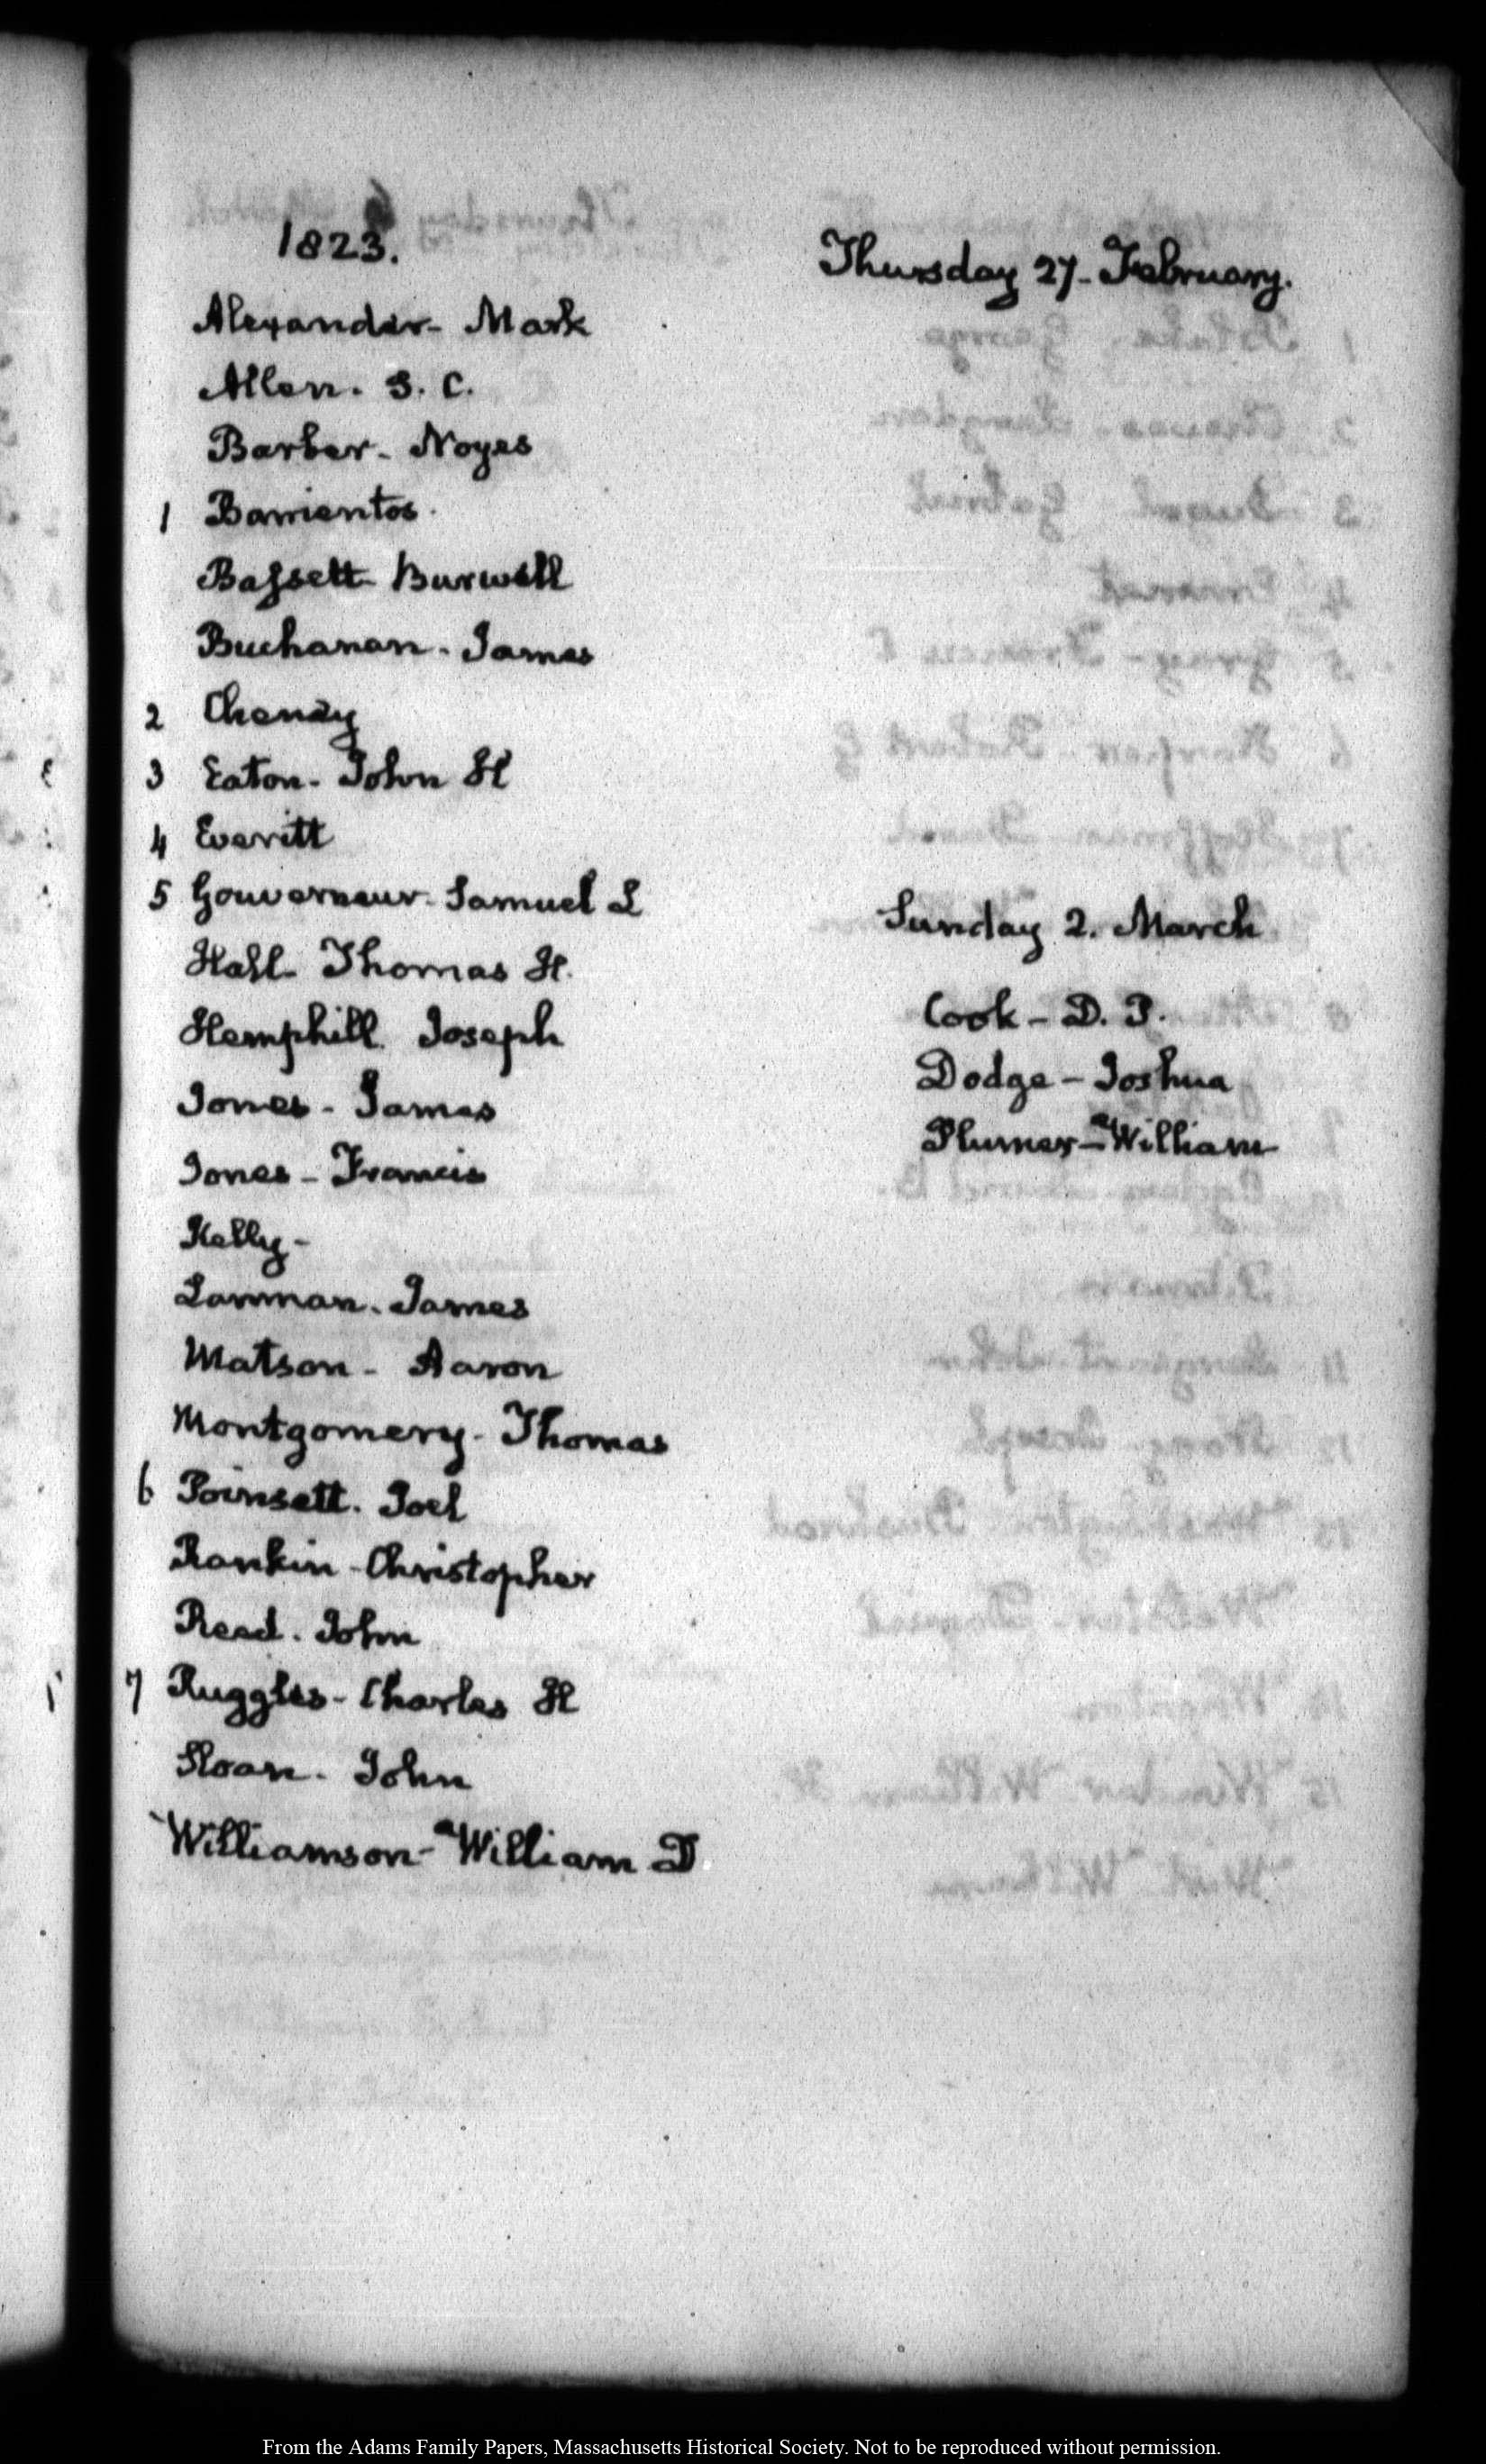 1823.
Thursday 27. February.
Alexander- Mark
Allen. S. C.
Barber- Noyes
1 Barrientos.
Bassett- Burwell
Buchanan- James
2 Cheney
3 Eaton- John H
4 Everitt
5 Gouverneur- Samuel L
Hall- Thomas H.
Hemphill Joseph
Jones- James
Jones- Francis
Kelly-
Lanman. James
Matson- Aaron
Montgomery- Thomas
6 Poinsett. Joel
Rankin- Christopher
Reed. John
7 Ruggles- Charles H
Sloan- John
Williamson- William D.
Sunday 2. March
Cook- D. P.
Dodge- Joshua
Plumer- William
From the Adams Family Papers, Massachusetts Historical Society. Not to be reproduced without permission.